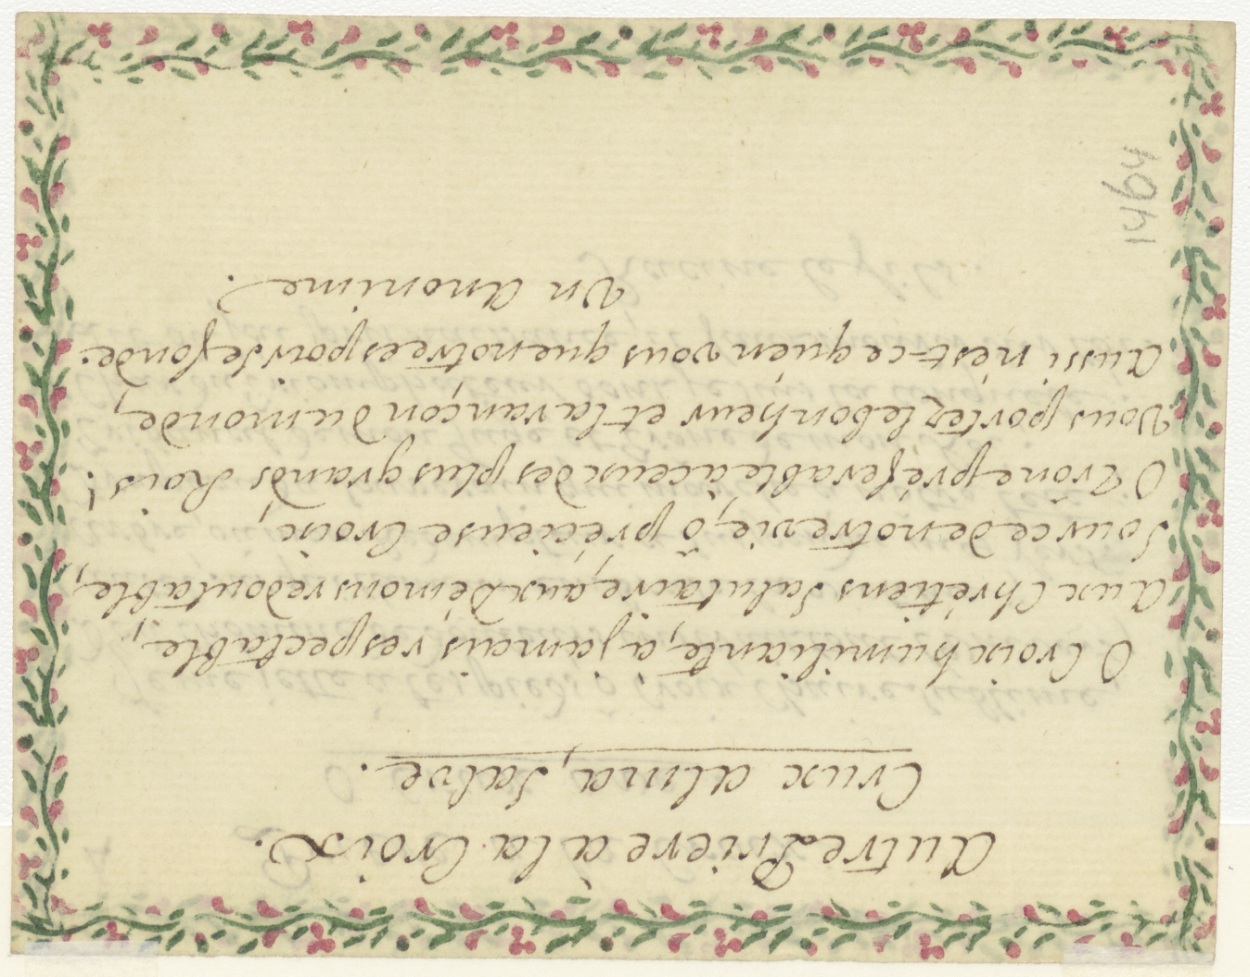 Autre Prière à la Croix.
Crux alma, Salve.
O Croix humiliante, a jamais respectable,
Aux Chrétiens Salutaire, aux Démons redoutable,
Source de notre vie, ô précieuse Croix,
O Trône préférable à ceux des plus grands Rois!
Vous portez le bonheur et la rançon du monde,
Aussi n'est=ce qu'en vous que notre espoir se fonde.
Un Anonime.